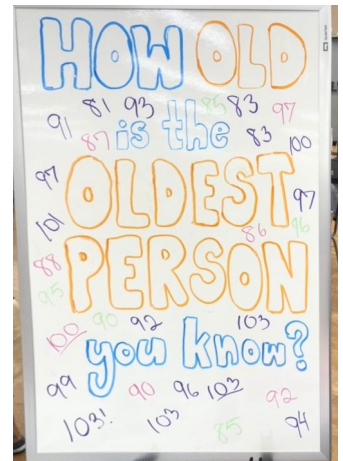 HOW OLD
91 81 93 85 83 97
87 is the 83 100
97 OLDEST 97
101 86 96
88 PERSON
95
100 90 92 103
you know?
99 90 96 103 92
103! 103 85 94